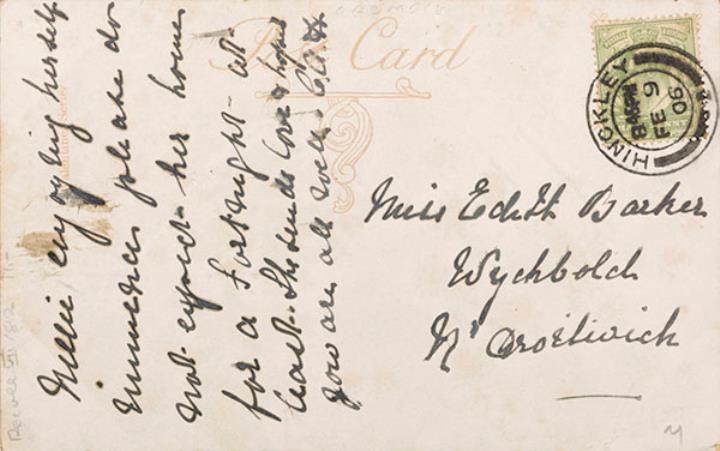 Post Card
HINCKLEY
8 45PM
FE 9
06
Miss Edith Barker
Wychbold
Nr Droitwich
Nellie enjoying herself
immensely please do
not expect her home
for a fortnight at
least. She sends love & hopes
you are all well.